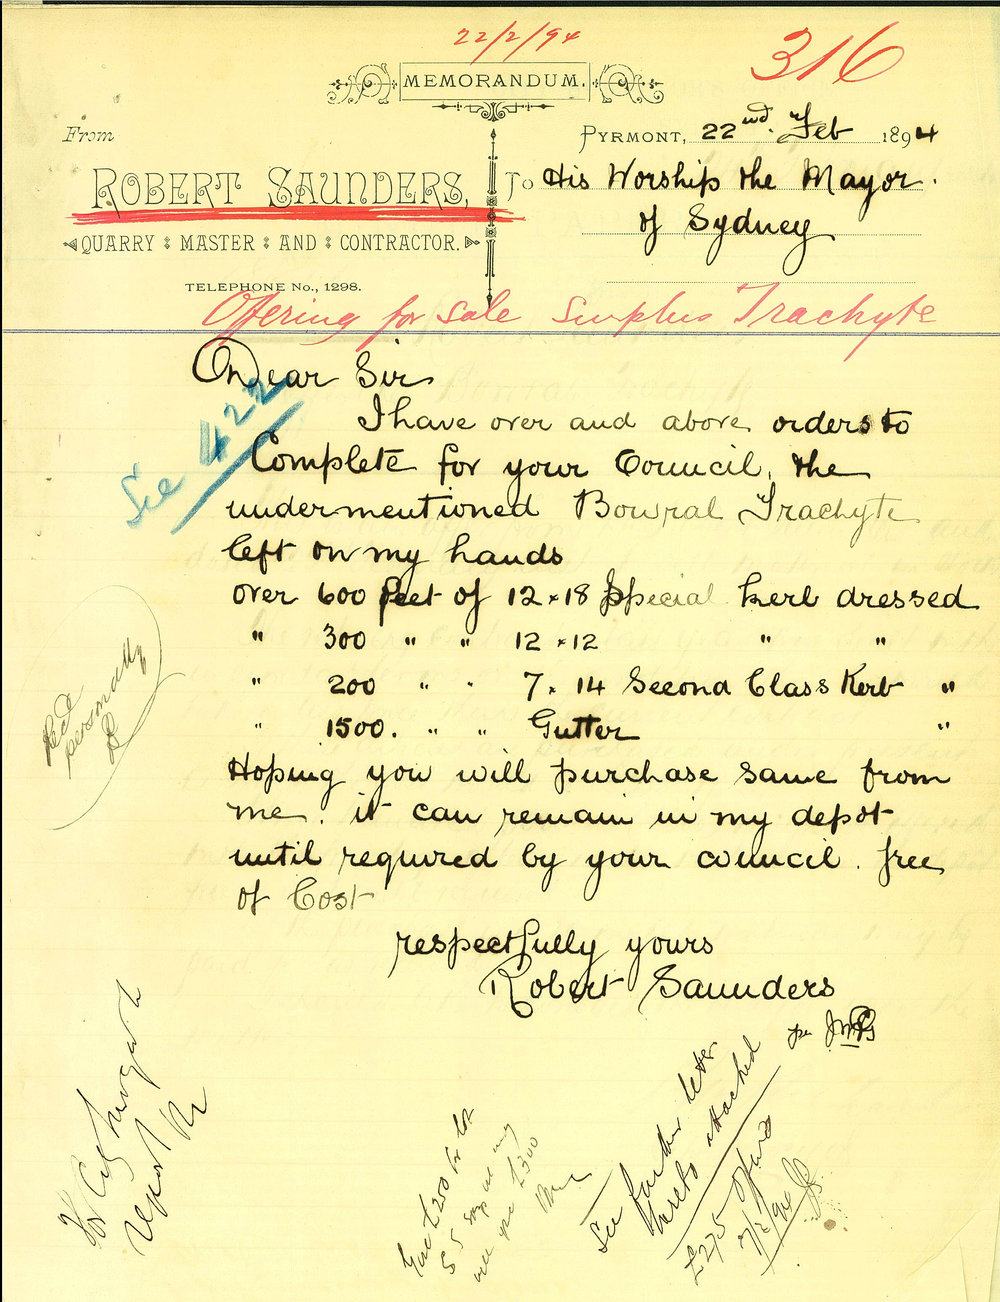 22/2/94
316
MEMORANDUM.
From
PYRMONT, 22nd. Feb 1894
ROBERT SAUNDERS,
To His Worship the Mayor.
of Sydney
QUARRY MASTER AND CONTRACTOR.
TELEPHONE No., 1298.
Offering for Sale Surplus Trachyte
Dear Sir
See 422
I have over and above orders to
Complete for your Council, the
undermentioned Bowral Trachyte
left on my hands
over 600 feet of 12 x 18 Special kerb dressed
" 300 " " 12 x 12 " "
" 200 " " 7 x 14 Second Class Kerb "
" 1500. " " Gutter "
Recd
personally
Hoping you will purchase same from
me. it can remain in my depot
until required by your council. free
of Cost
respectfully yours
Robert Saunders
per
For City
report
£250 for lot
£300
See further letter
hereto attached
£275
7/2/94